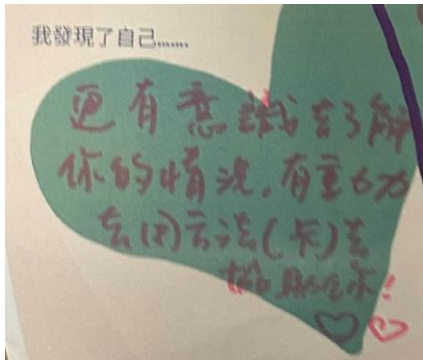 我發現了自己......
更有意識去了解
你的情況，有
去(用)方法(卡)去
你！